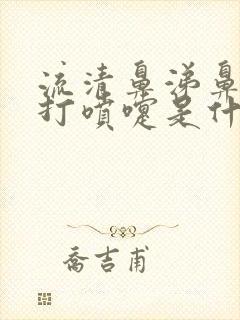 流清鼻涕鼻
打喷嚏是什
喬吉甫